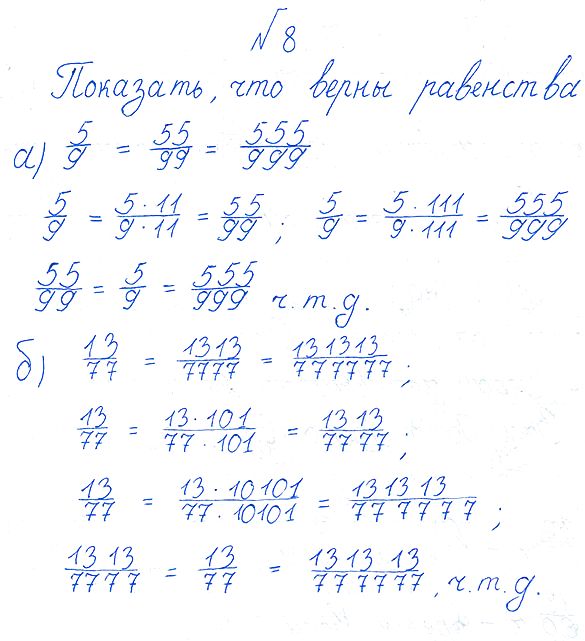 № 8
Показать, что верны равенства
а) 5/9 = 55/99 = 555/999
5/9 = 5·11/9·11 = 55/99 ; 5/9 = 5·111/9·111 = 555/999
55/99 = 5/9 = 555/999 ч.т.д.
б) 13/77 = 1313/7777 = 131313/777777 ;
13/77 = 13·101/77·101 = 1313/7777 ;
13/77 = 13·10101/77·10101 = 131313/777777 ;
1313/7777 = 13/77 = 131313/777777 , ч.т.д.